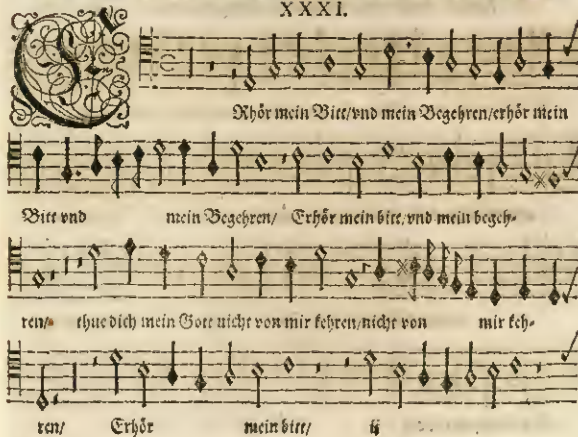 XXXI.
ERhör mein Bitt/vnd mein Begehren/erhör mein
Bitt vnd mein Begehren/ Erhör mein bitt/vnd mein begeh-
ren/ thue dich mein Gott nicht von mir kehren/nicht von mir keh-
ren/ Erhör mein bitt/ ij